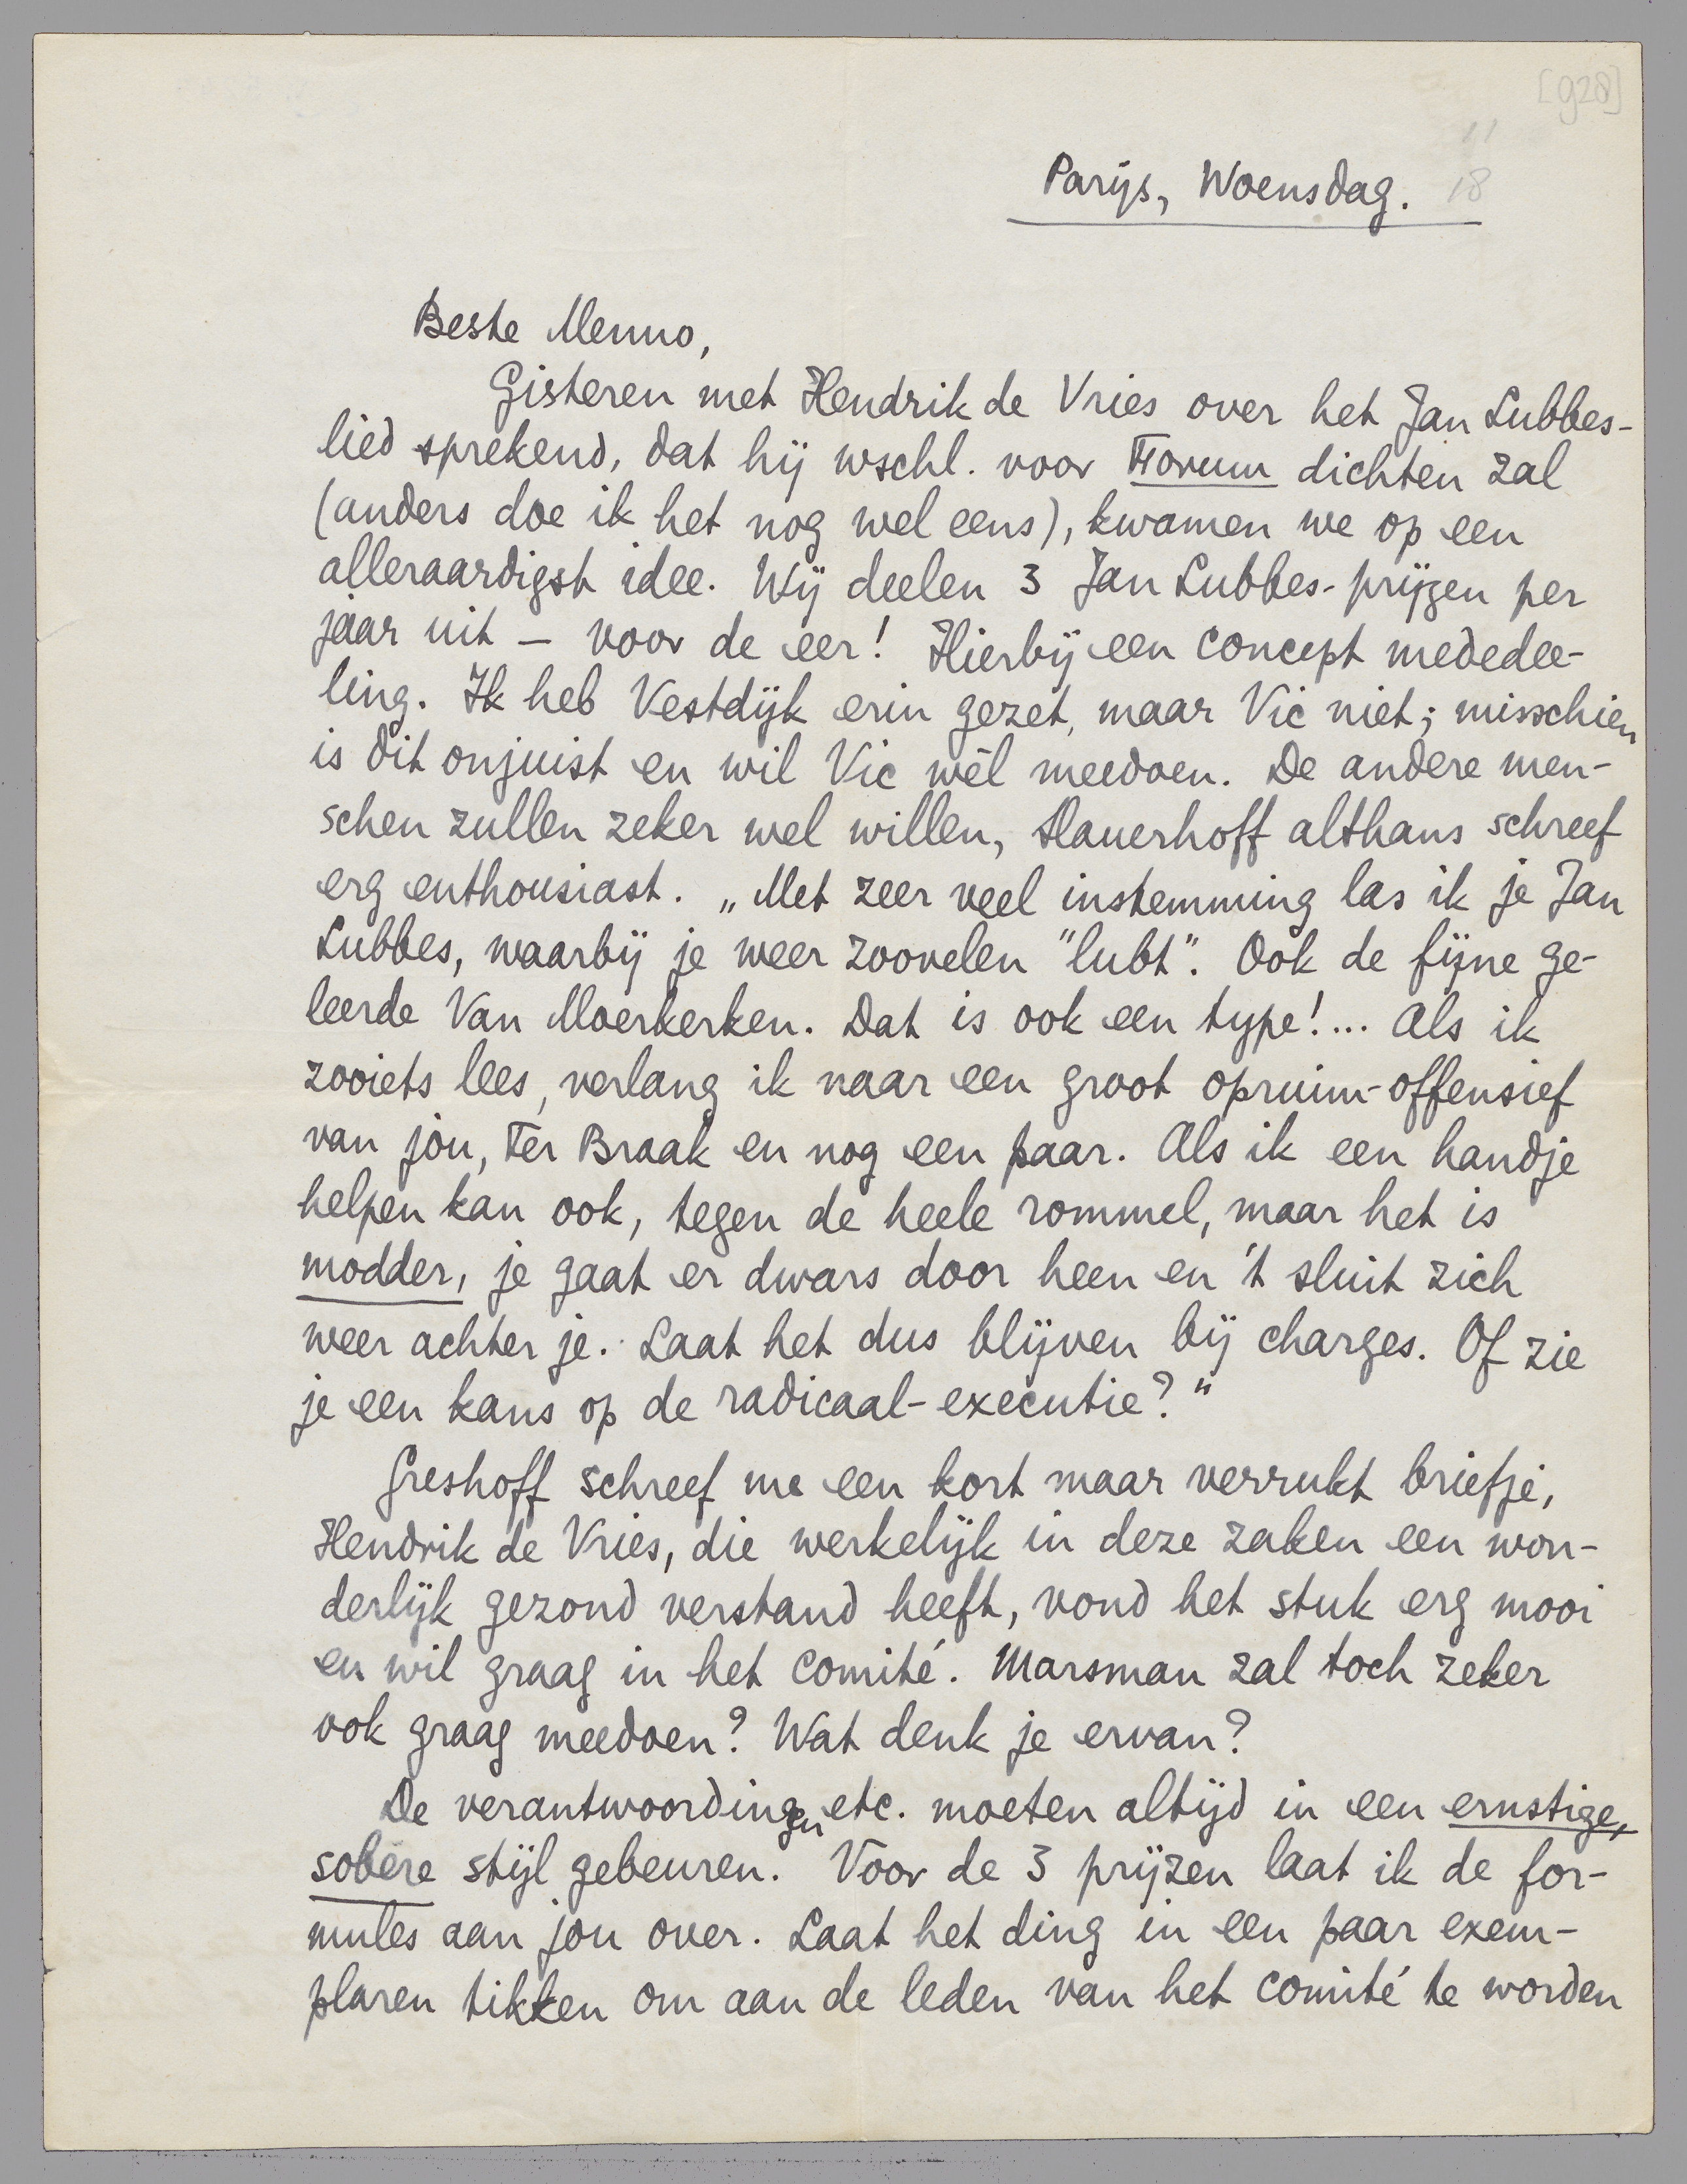 [928]
11
Parijs, Woensdag. 18
Beste Menno,
Gisteren met Hendrik de Vries over het Jan Lubbes-
lied sprekend, dat hij wschl. voor Forum dichten zal
(anders doe ik het nog wel eens), kwamen we op een
alleraardigst idee. Wij deelen 3 Jan Lubbes-prijzen per
jaar uit – voor de eer! Hierbij een concept mededee-
ling. Ik heb Vestdijk erin gezet, maar Vic niet; misschien
is dit onjuist en wil Vic wèl meedoen. De andere men-
schen zullen zeker wel willen, Slauerhoff althans schreef
erg enthousiast. „Met zeer veel instemming las ik je Jan
Lubbes, waarbij je weer zoovelen "lubt". Ook de fijne ge-
leerde Van Moerkerken. Dat is ook een type!... Als ik
zooiets lees, verlang ik naar een groot opruim-offensief
van jou, Ter Braak en nog een paar. Als ik een handje
helpen kan ook, tegen de heele rommel, maar het is
modder, je gaat er dwars door heen en 't sluit zich
weer achter je. Laat het dus blijven bij charges. Of zie
je een kans op de radicaal-executie?"
Greshoff schreef me een kort maar verrukt briefje,
Hendrik de Vries, die werkelijk in deze zaken een won-
derlijk gezond verstand heeft, vond het stuk erg mooi
en wil graag in het comité. Marsman zal toch zeker
ook graag meedoen? Wat denk je ervan?
De verantwoordingen etc. moeten altijd in een ernstige,
sobere stijl gebeuren. Voor de 3 prijzen laat ik de for-
mules aan jou over. Laat het ding in een paar exem-
plaren tikken om aan de leden van het comité te worden